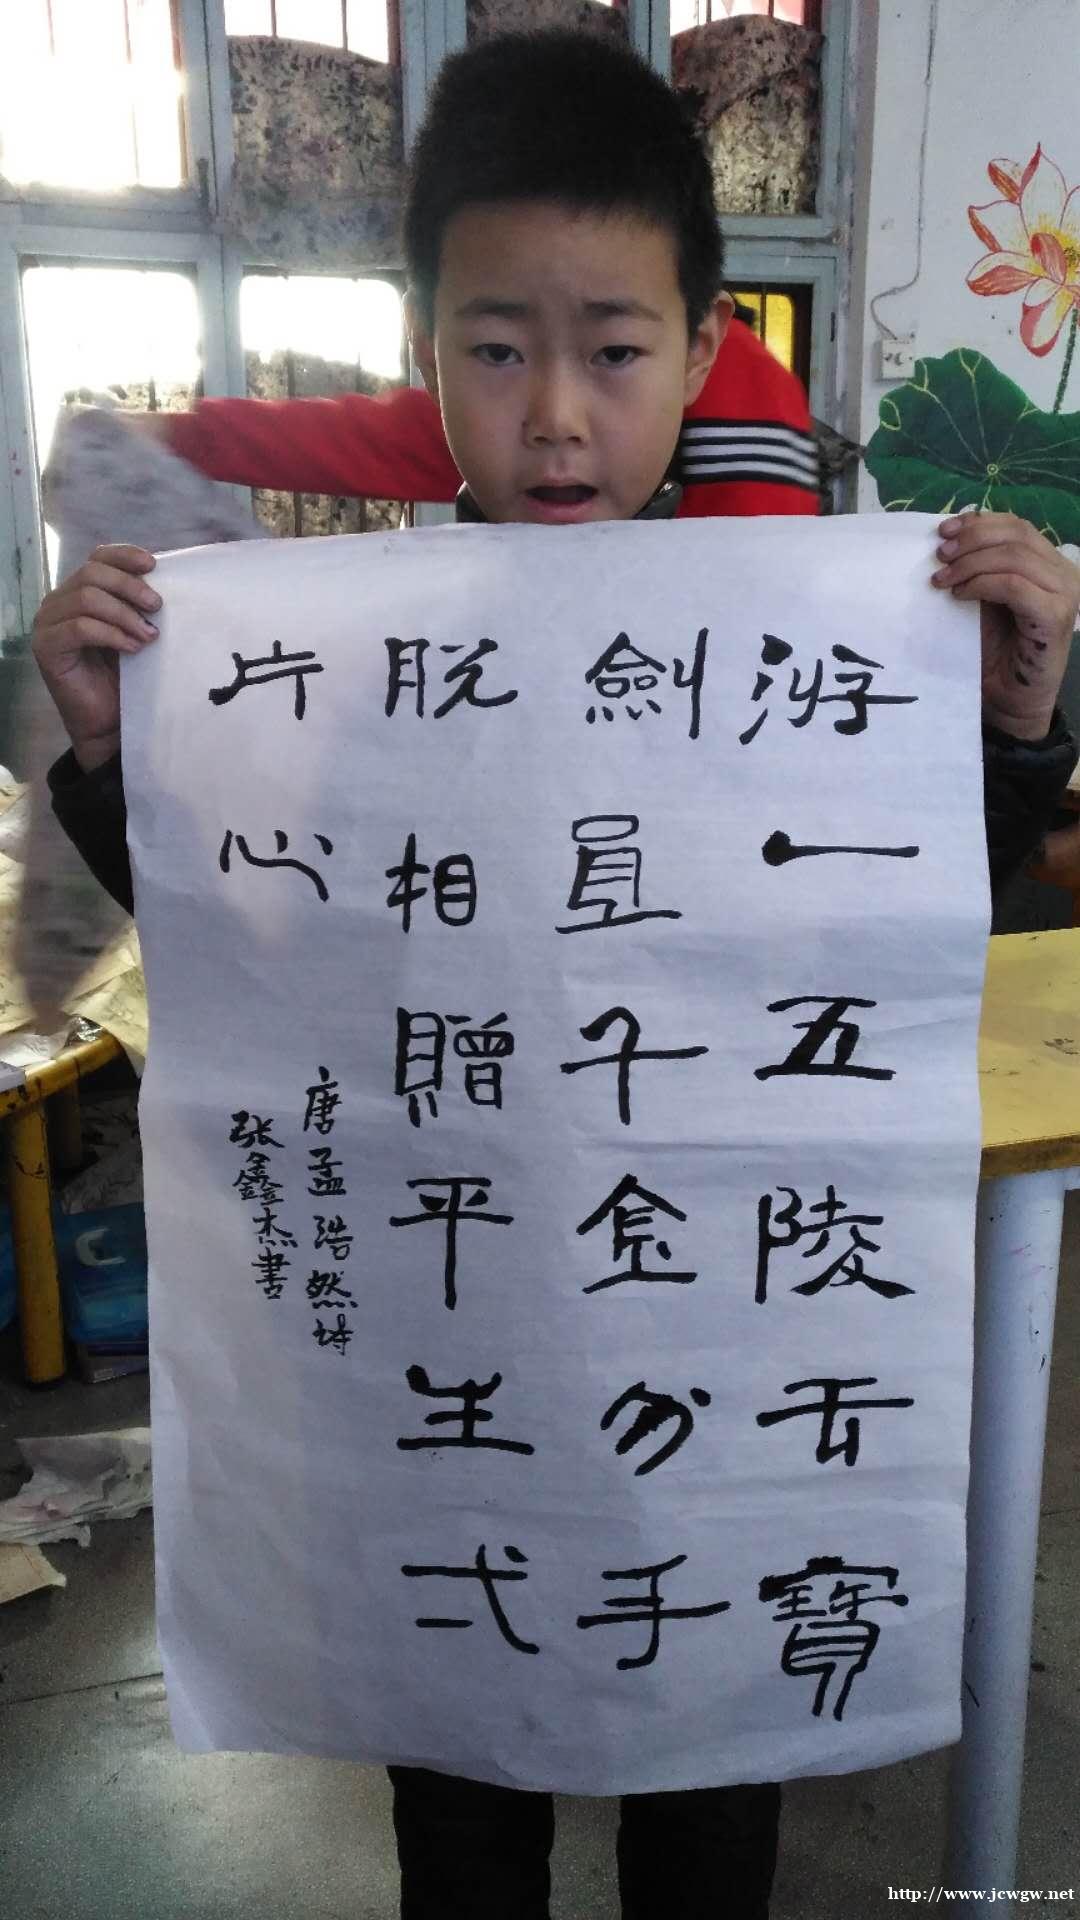 游一五陵去寶
劍直千金分手
脱相贈平生弌
片心
唐孟浩然诗
张鑫杰書
http://www.jcwgw.net